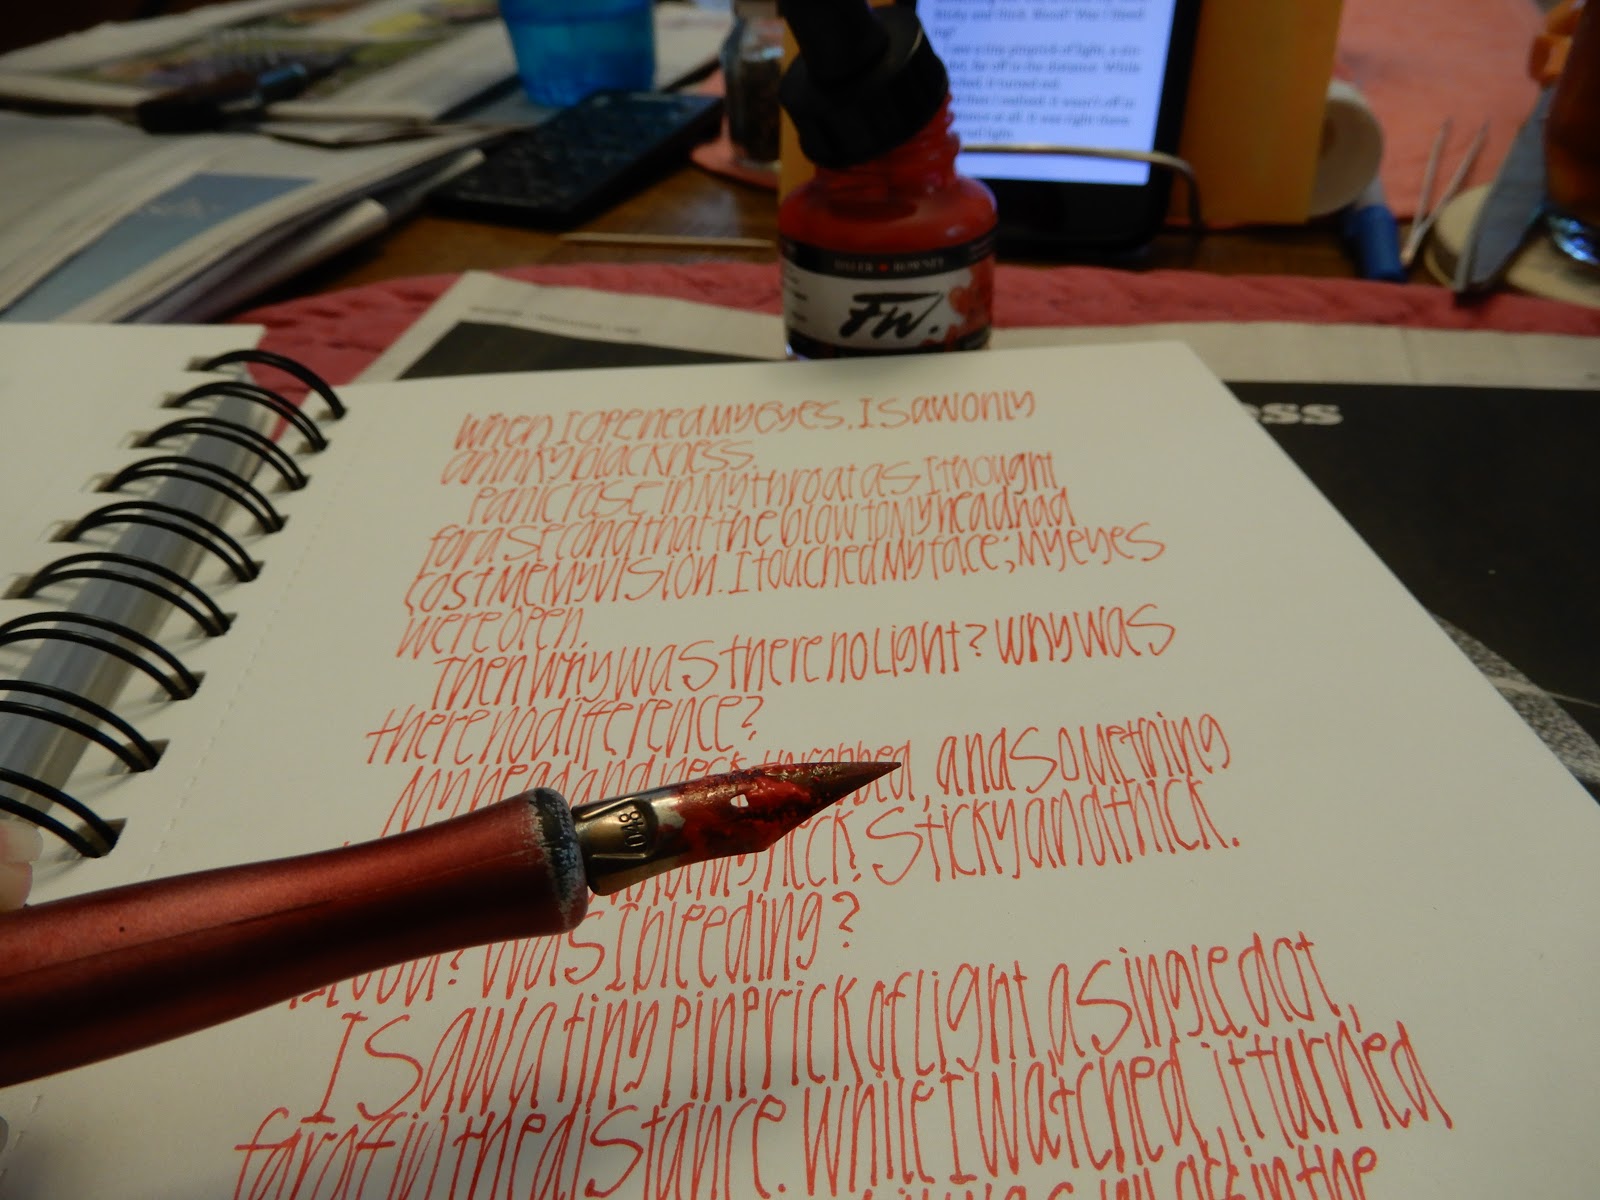 sticky and thick. Blood? Was I bleed-
ing?
I saw a tiny pinprick of light, a sin-
dot, far off in the distance. While
it turned
then I realized. It wasn't off in
distance at all. It was right there
red light.
DALER ROWNEY
FW.
ess
When I opened my eyes, I saw only
an inky blackness.
Panic rose in my throat as I thought
for a second that the blow to my head had
cost me my vision. I touched my face; my eyes
were open.
Then why was there no light? Why was
there no difference?
My head and neck throbbed, and something
my neck. Sticky and thick.
Blood? Was I bleeding?
I saw a tiny pinprick of light, a single dot,
far off in the distance. While I watched, it turned
off in the
1048